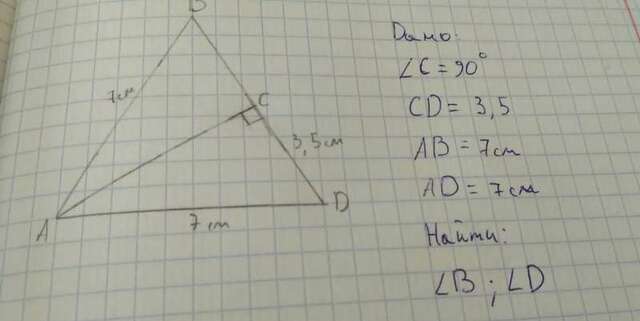 B
7см
C
3,5см
A
7см
D
Дано:
∠C = 90°
CD = 3,5
AB = 7см
AD = 7см
Найти:
∠B ; ∠D